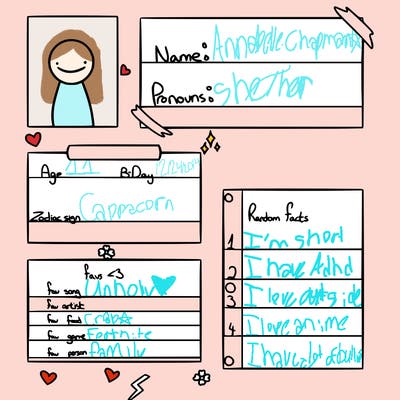 Name: Annabelle Chapman
Pronouns: She/her
Age 11 B-Day
Zodiac sign Cappacorn
favs <3
fav song Unholy
fav artist
fav food
fav game Fortnite
fav person family
Random facts
1 I'm short
2 I have Adhd
3 I love outside
4 I love anime
I have a lot of